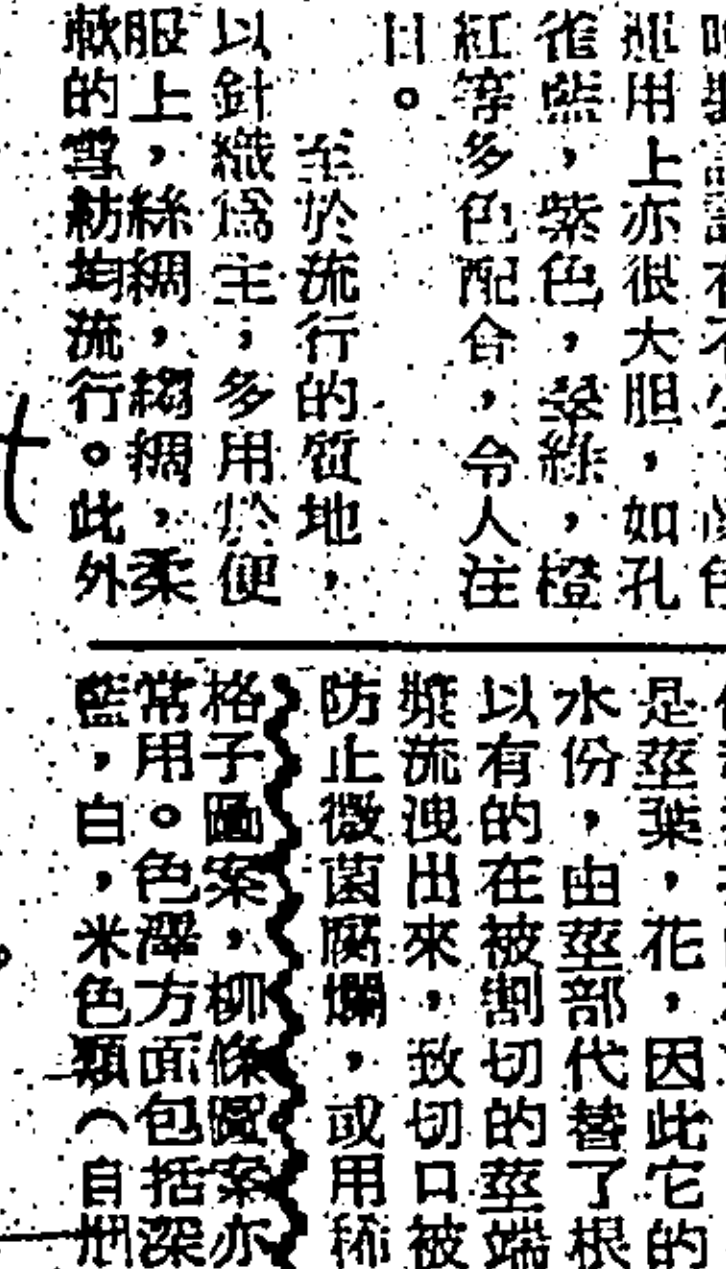 運用上亦很大胆，如孔
雀藍，紫色，翠綠，橙
紅等多色配合，令人注
目。
至於流行的質地，
以針織為主；多用於便
服上，絲綢，縐綢，柔
軟的雪紡均流行。此外
是莖葉，花，因此它的
水份，由莖部代替了根
以有的在被割切的莖端
漿流洩出來，致切口被
防止微菌腐爛，或用稀
格子圖案，柳條圖案亦
常用。色澤方面包括深
藍，白，米色類（自